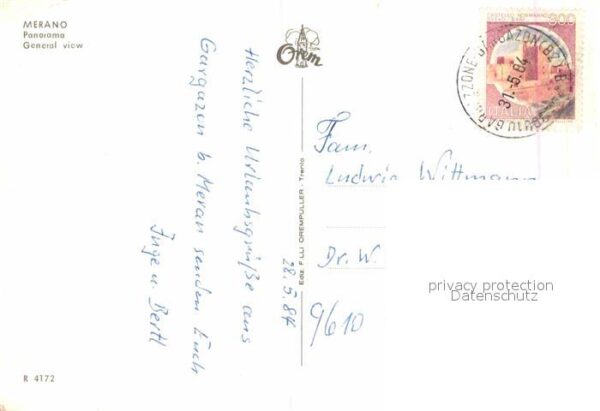 MERANO
Panorama
General view
Orem
Herzliche Urlaubsgrüße aus
Gargazon b. Meran senden Euch
Inge u. Bertl
28.5.84
Ediz. F.LLI OREMPULLER - Trento
CASTELLO NORMANNO
300
ITALIA
31.5.84
Fam.
Ludwig Wittmann
Dr. W.
9610
privacy protection
Datenschutz
R 4172